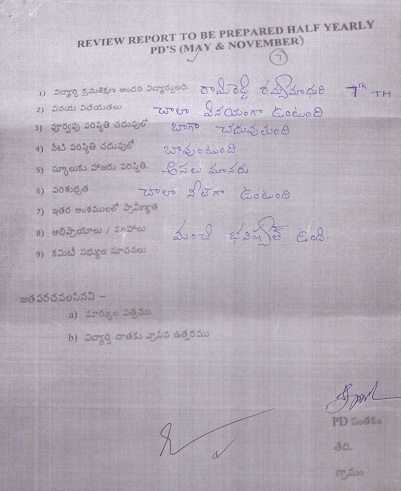 REVIEW REPORT TO BE PREPARED HALF YEARLY
PD'S (MAY & NOVEMBER)
7
1) విద్యార్థి క్రమశిక్షణ అందరి విద్యార్థులది. రామిరెడ్డి రమ్యమాధురి 7th TM
2) వినయ విధేయతలు చాలా వినయంగా ఉంటుంది
3) పూర్వపు పరిస్థితి చదువులో బాగా చదువుతుంది
4) నేటి పరిస్థితి చదువులో బావుంటుంది
5) స్కూలుకు హాజరు పరిస్థితి. అసలు మానదు
6) పరిశుభ్రత చాలా నీట్‌గా ఉంటుంది
7) ఇతర అంశములలో ప్రావీణ్యత
8) అభిప్రాయాలు / సలహాలు మంచి భవిష్యత్ ఉంది.
9) కమిటీ సభ్యుల సూచనలు
జతపరచవలసినవి –
a) మార్కుల పత్రము
b) విద్యార్థి దాతకు వ్రాసిన ఉత్తరము
PD సంతకం
తేది.
గ్రామం